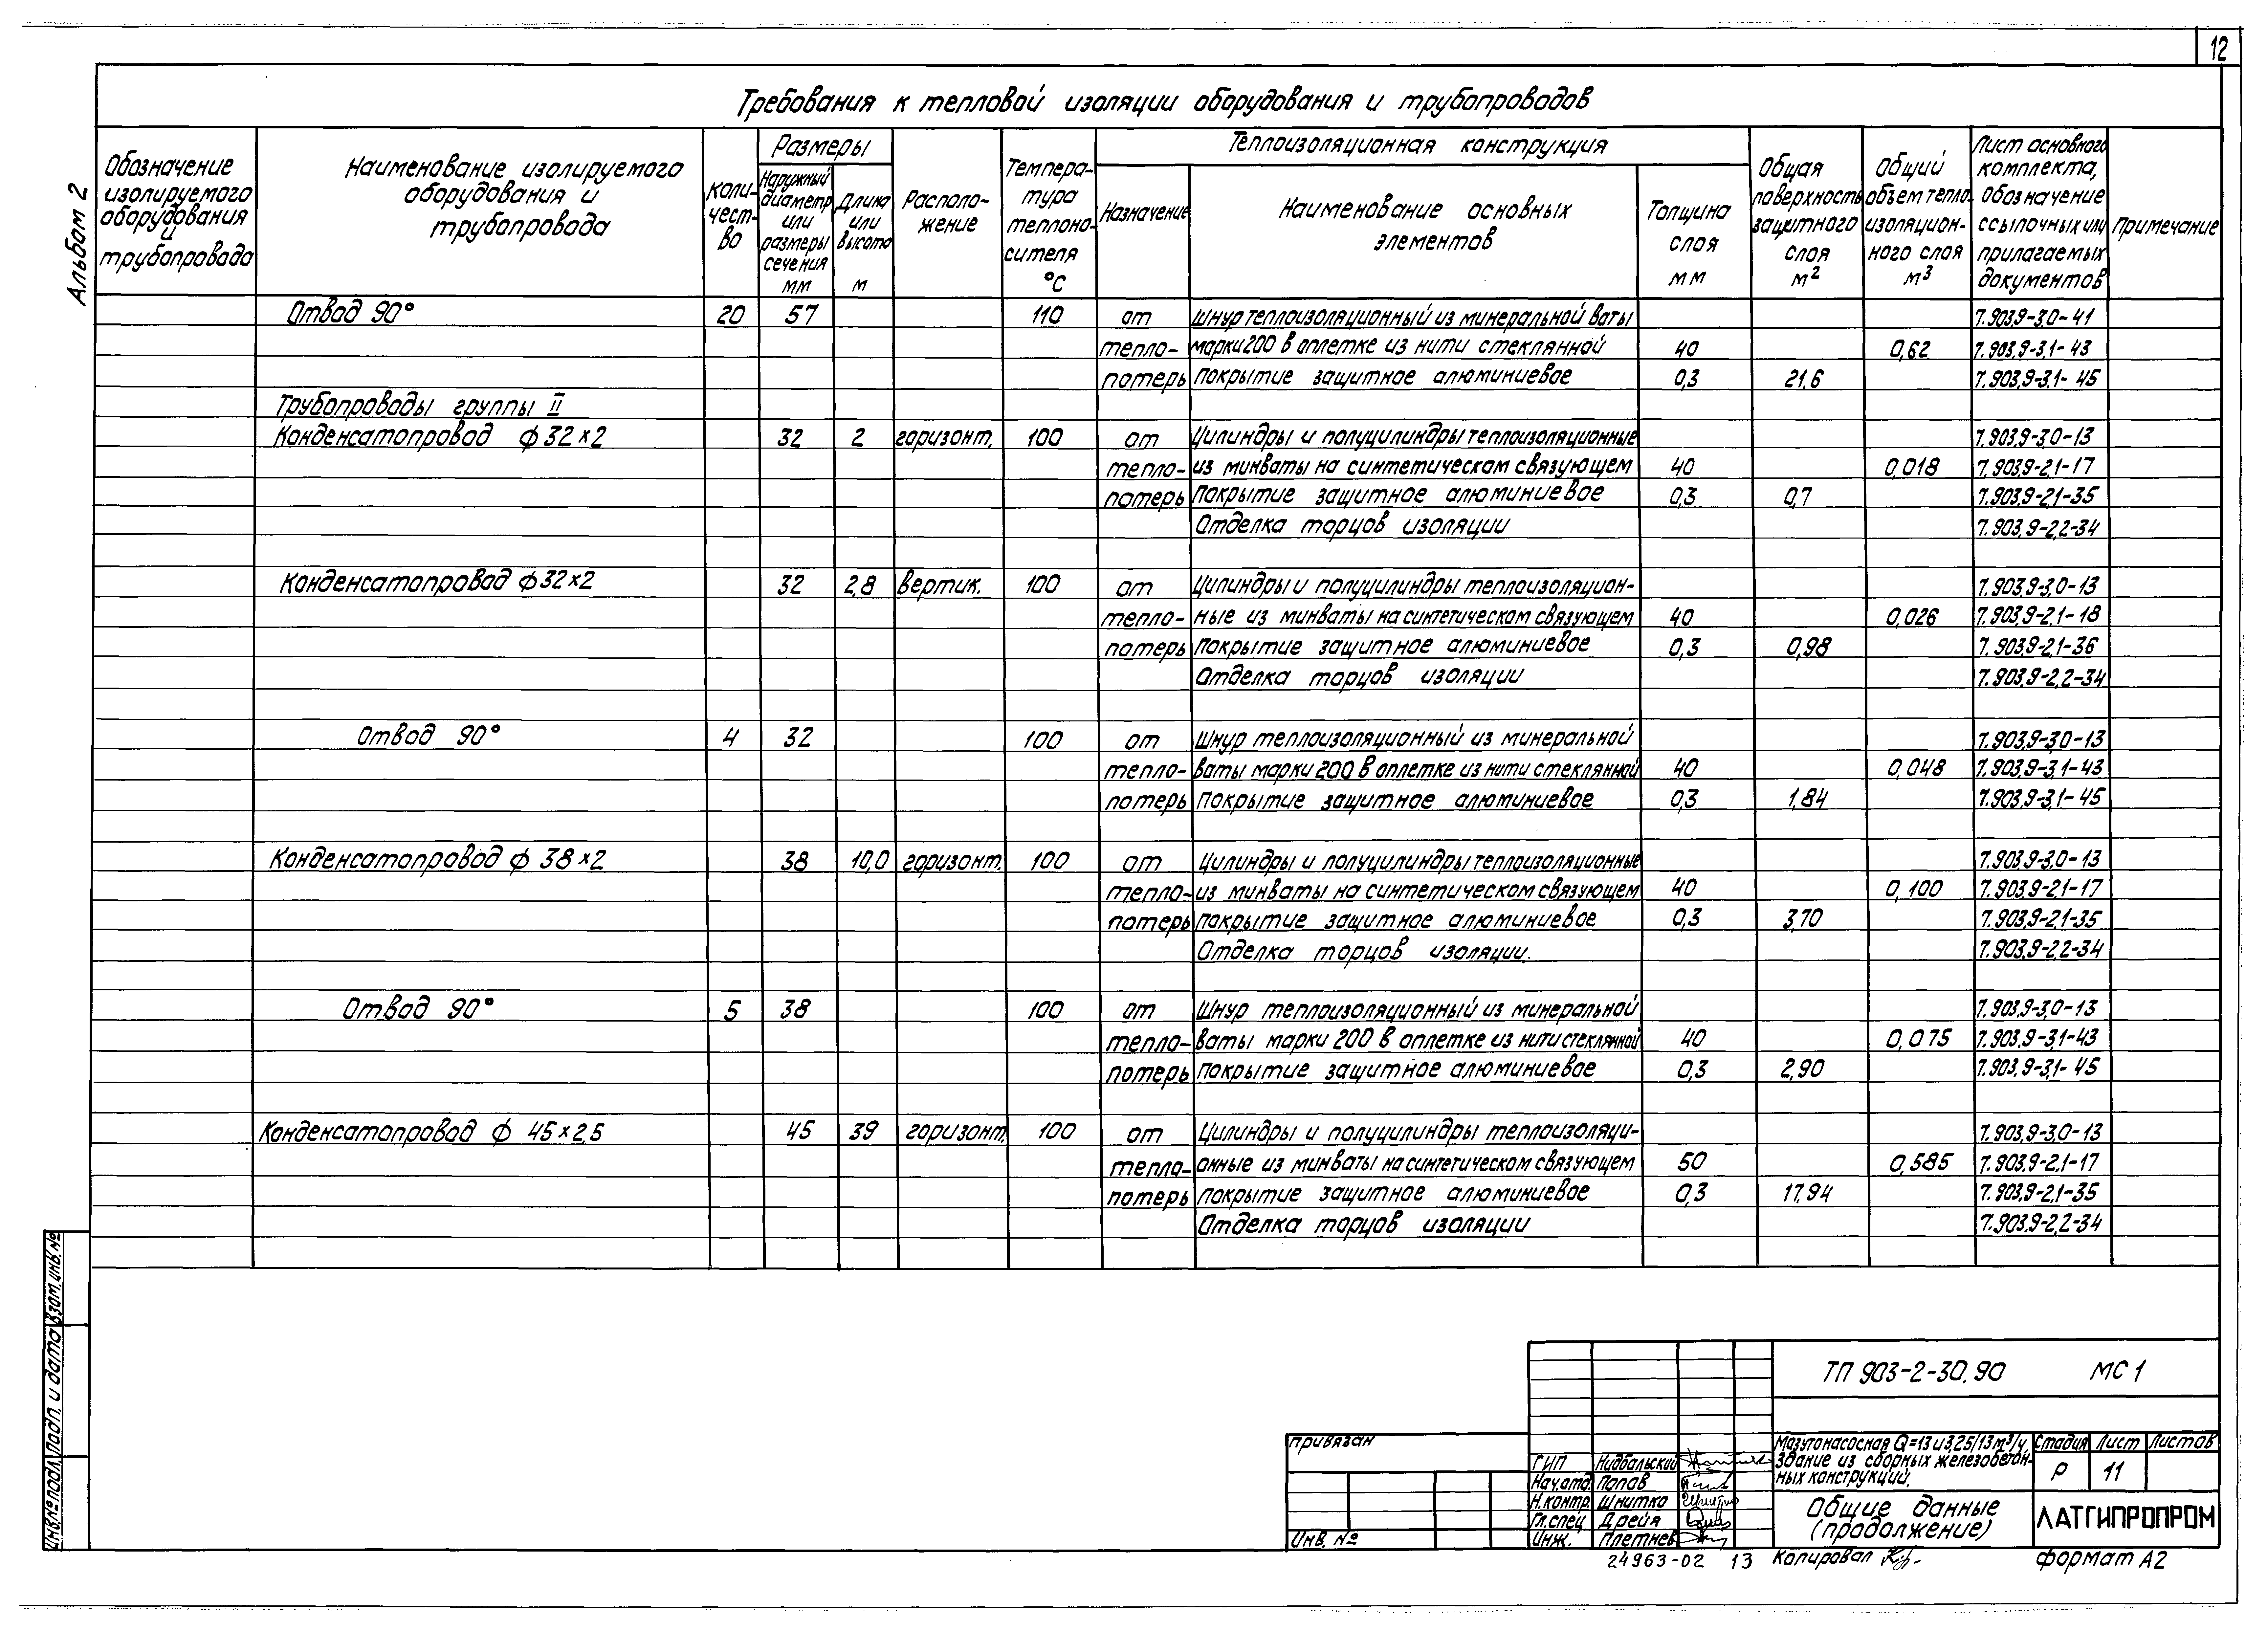 12
Альбом 2
Требования к тепловой изоляции оборудования и трубопроводов
Обозначение изолируемого оборудования и трубопровода
Наименование изолируемого оборудования и трубопровода
Коли-чест-во
Размеры
Наружный диаметр или размеры сечения мм
Длина или высота м
Располо-жение
Темпера-тура теплоно-сителя °С
Теплоизоляционная конструкция
Назначение
Наименование основных элементов
Толщина слоя мм
Общая поверхность защитного слоя м²
Общий объем тепло-изоляцион-ного слоя м³
Лист основного комплекта, обозначение ссылочных или прилагаемых документов
Примечание
Отвод 90° 20 57 110 от Шнур теплоизоляционный из минеральной ваты 7.903,9-3,0-41
тепло- марки 200 в оплетке из нити стеклянной 40 0,62 7.903,9-3,1-43
потерь покрытие защитное алюминиевое 0,3 21,6 7.903,9-3,1-45
Трубопроводы группы II
Конденсатопровод ф 32×2 32 2 горизонт. 100 от Цилиндры и полуцилиндры теплоизоляционные 7.903,9-3,0-13
тепло- из минваты на синтетическом связующем 40 0,018 7.903,9-2,1-17
потерь покрытие защитное алюминиевое 0,3 0,7 7.903,9-2,1-35
Отделка торцов изоляции 7.903,9-2,2-34
Конденсатопровод ф 32×2 32 2,8 вертик. 100 от Цилиндры и полуцилиндры теплоизоляцион- 7.903,9-3,0-13
тепло- ные из минваты на синтетическом связующем 40 0,026 7.903,9-2,1-18
потерь покрытие защитное алюминиевое 0,3 0,98 7.903,9-2,1-36
Отделка торцов изоляции 7.903,9-2,2-34
Отвод 90° 4 32 100 от Шнур теплоизоляционный из минеральной 7.903,9-3,0-13
тепло- ваты марки 200 в оплетке из нити стеклянной 40 0,048 7.903,9-3,1-43
потерь Покрытие защитное алюминиевое 0,3 1,84 7.903,9-3,1-45
Конденсатопровод ф 38×2 38 10,0 горизонт. 100 от Цилиндры и полуцилиндры теплоизоляционные 7.903,9-3,0-13
тепло- из минваты на синтетическом связующем 40 0,100 7.903,9-2,1-17
потерь покрытие защитное алюминиевое 0,3 3,70 7.903,9-2,1-35
Отделка торцов изоляции. 7.903,9-2,2-34
Отвод 90° 5 38 100 от Шнур теплоизоляционный из минеральной 7.903,9-3,0-13
тепло- ваты марки 200 в оплетке из нити стеклянной 40 0,075 7.903,9-3,1-43
потерь покрытие защитное алюминиевое 0,3 2,90 7.903,9-3,1-45
Конденсатопровод ф 45×2,5 45 39 горизонт. 100 от Цилиндры и полуцилиндры теплоизоляци- 7.903,9-3,0-13
тепло- онные из минваты на синтетическом связующем 50 0,585 7.903,9-2,1-17
потерь покрытие защитное алюминиевое 0,3 17,94 7.903,9-2,1-35
Отделка торцов изоляции 7.903,9-2,2-34
Инв.№ подл. Подп. и дата Взам.инв.№
ТП 903-2-30.90 МС 1
Привязан
Инв. №
ГИП Нидбальский
Нач.отд. Попов
Н.контр. Шнитко
Гл.спец Дрейя
Инж. Плетнев
Мазутонасосная Q=13 и 3,25/13 м³/ч.
Здание из сборных железобетон-
ных конструкций.
Стадия Лист Листов
Р 11
Общие данные
(продолжение)
ЛАТГИПРОПРОМ
24963-02 13 Копировал формат А2